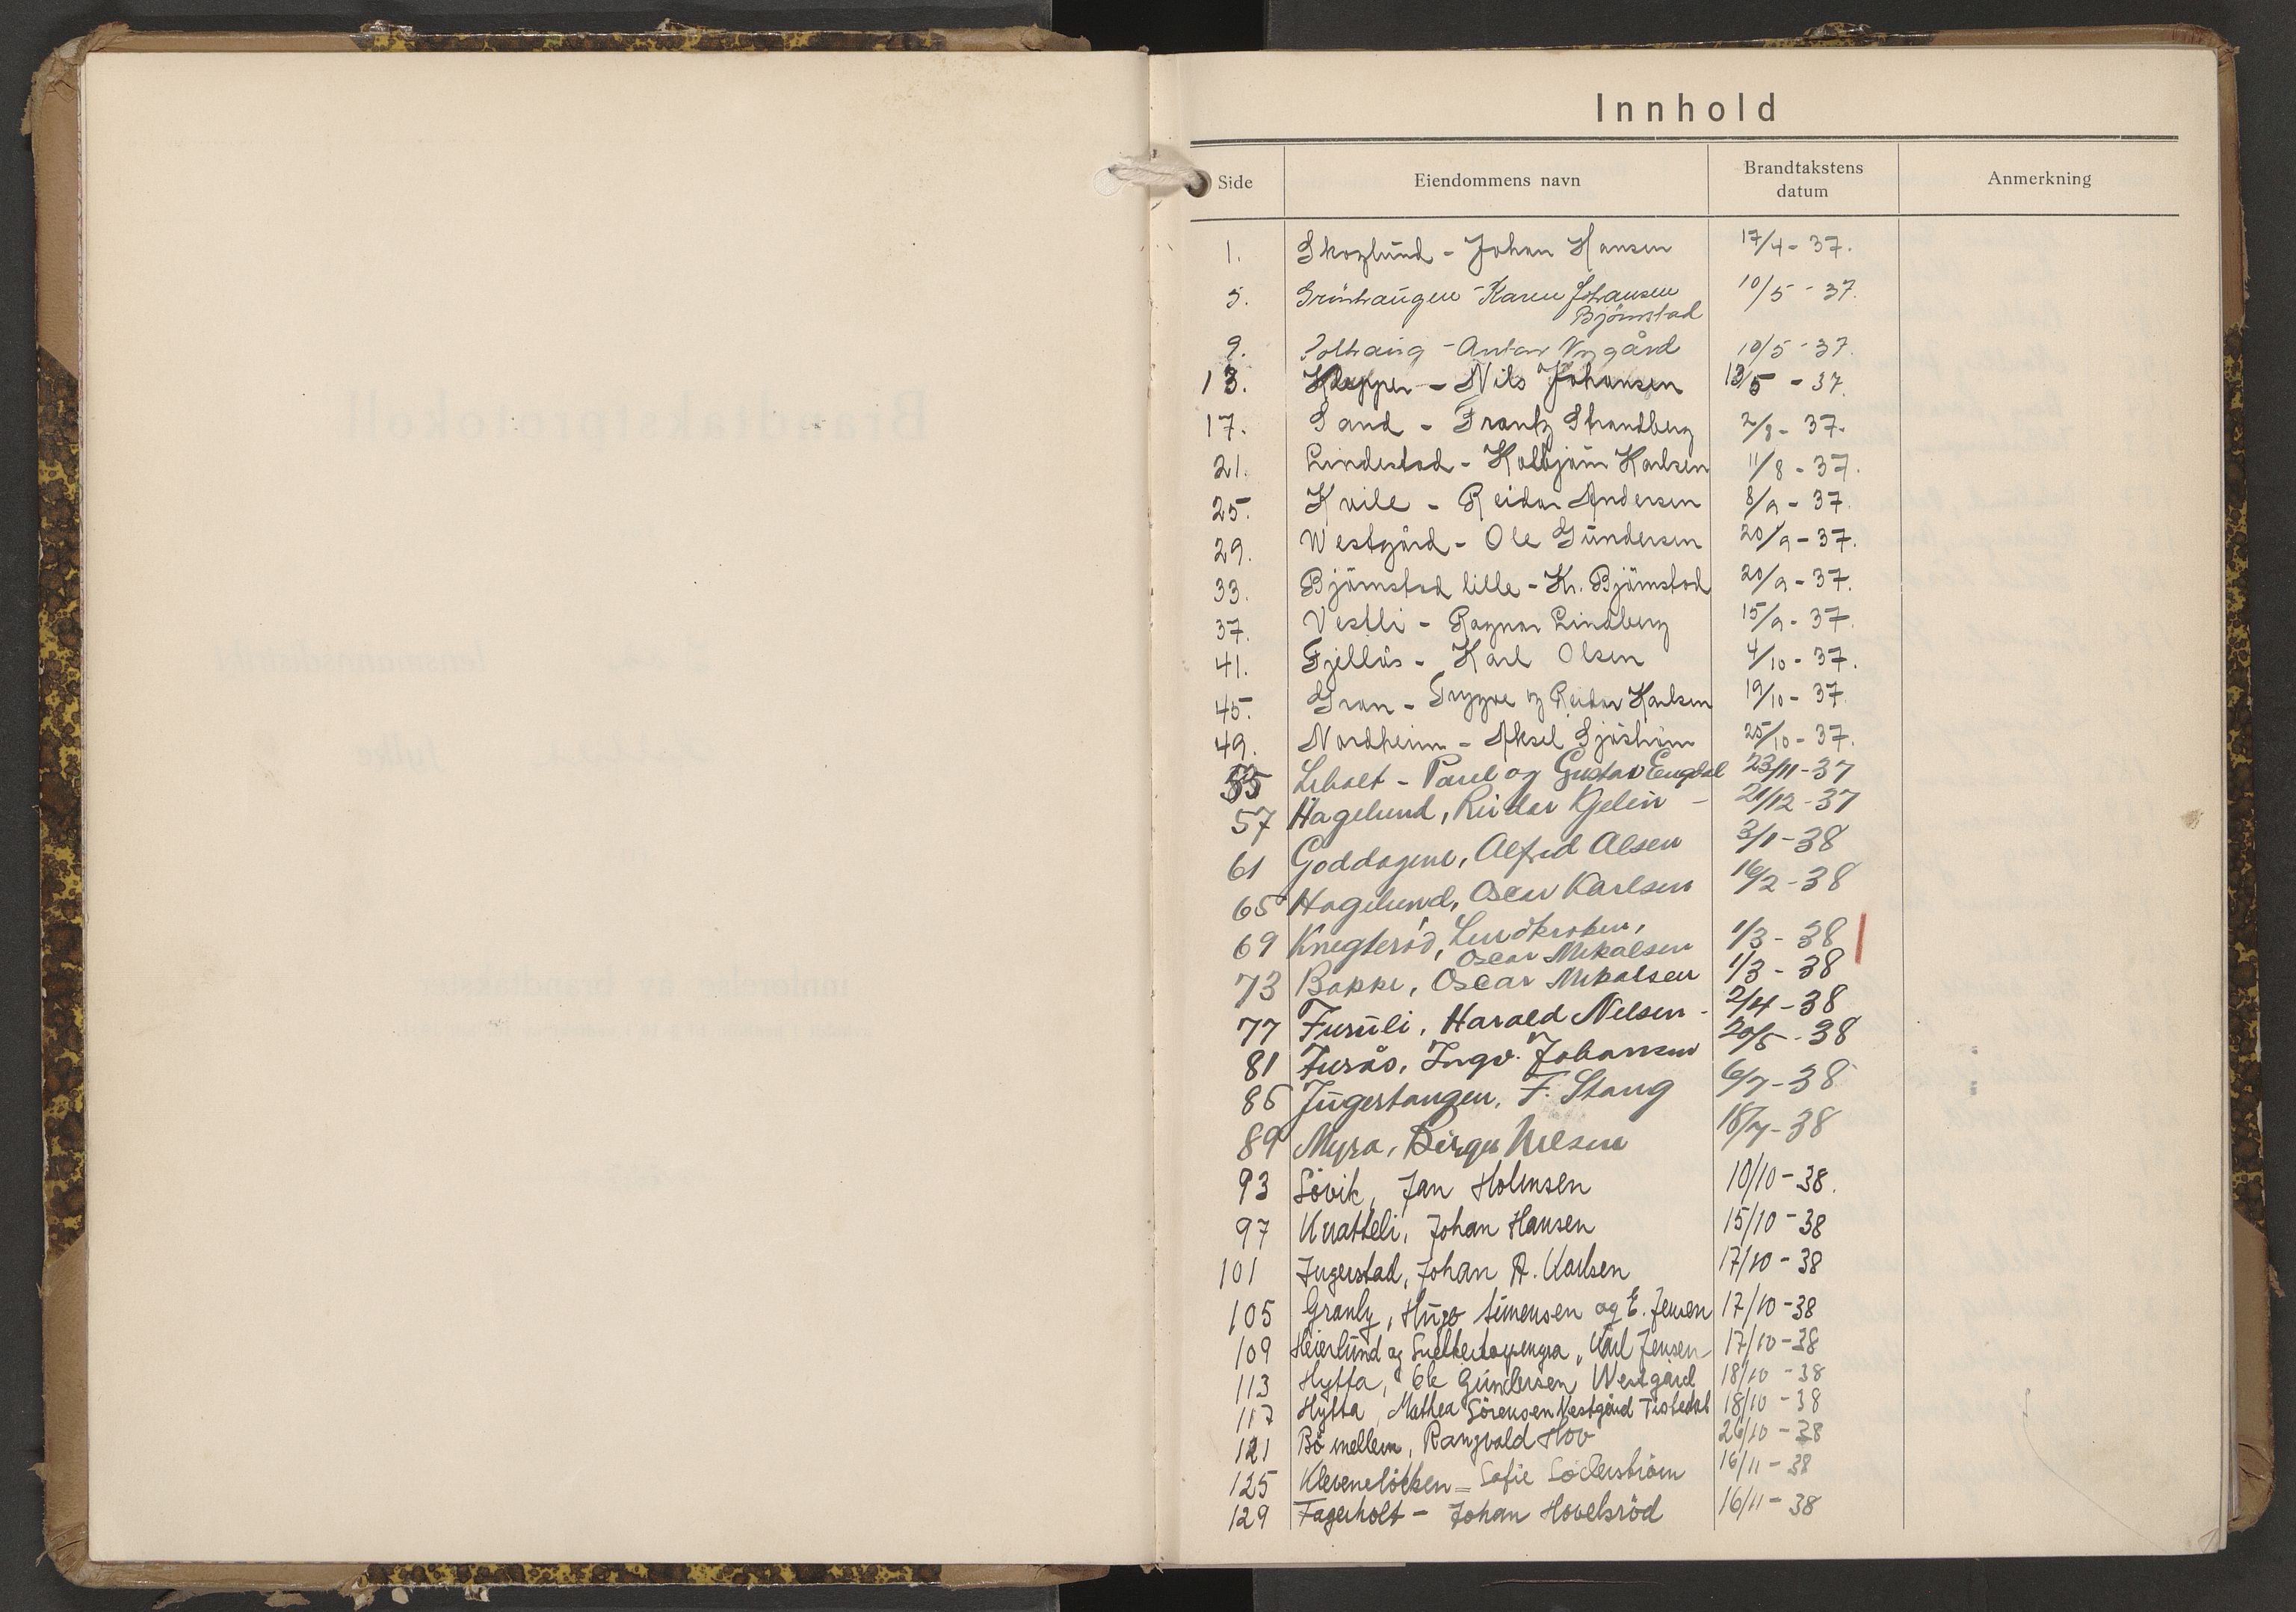 Innhold
Side Eiendommens navn Brandtakstens datum Anmerkning
1. Skoglund - Johan Hansen 17/4 - 37.
5. Grönhaugen - Karen Johansen 10/5 - 37.
Björnstad
9. Solhaug - Anton Nygård 10/5 - 37.
13. Klepper - Nils Johansen 13/5 - 37.
17. Sand - Frantz Strandberg 2/8 - 37.
21. Lindestad - Kolbjörn Karlsen 11/8 - 37.
25. Kvile - Reidar Andersen 8/9 - 37.
29. Westgård - Ole Gundersen 20/9 - 37.
33. Björnstad lille - Kr. Björnstad 20/9 - 37.
37. Vestli - Ragnar Lindberg 15/9 - 37.
41. Fjellås - Karl Olsen 4/10 - 37.
45. Gran - Trygve og Reidar Karlsen 19/10 - 37
49. Nordheim - Aksel Sjöström 25/10 - 37.
Liholt - Paul og Gustav Engdal 23/11 - 37
57 Hagelund, Reidar Kjelin - 21/12 - 37
61 Goddagene, Alfred Olsen 3/1 - 38
65 Hagelund, Oscar Karlsen 16/2 - 38
69 Knegteröd, 1/3 - 38
Oscar Mikalsen
73 Bakke, Oscar Mikalsen 1/3 - 38
77 Furuli, Harald Nilsen - 2/4 - 38
81 Furås, Ingv. Johansen 20/5 - 38
85 Jugerstangen, F. Stang 6/7 - 38
89 Myra, Birger Nilsen 18/7 - 38
93 Sövik, Jan Holmsen 10/10 - 38.
97 Knatteli, Johan Hansen 15/10 - 38
101 Ingerstad, Johan A. Karlsen 17/10 - 38
105 Granly, Hugo Simensen og E. Jensen 17/10 - 38
109 Heierlund og Karl Jensen 17/10 - 38
113 Hytta, Ole Gundersen Westgård 18/10 - 38
117 Hytta, Mathea Sörensen Vestgård Tistedal 18/10 - 38
121 Bö mellem, Rangvald Hov 26/10 - 38
125 Klevenelökken = Sofie Söderström 16/11 - 38
129 Fagerholt - Johan Hovelsröd 16/11 - 38